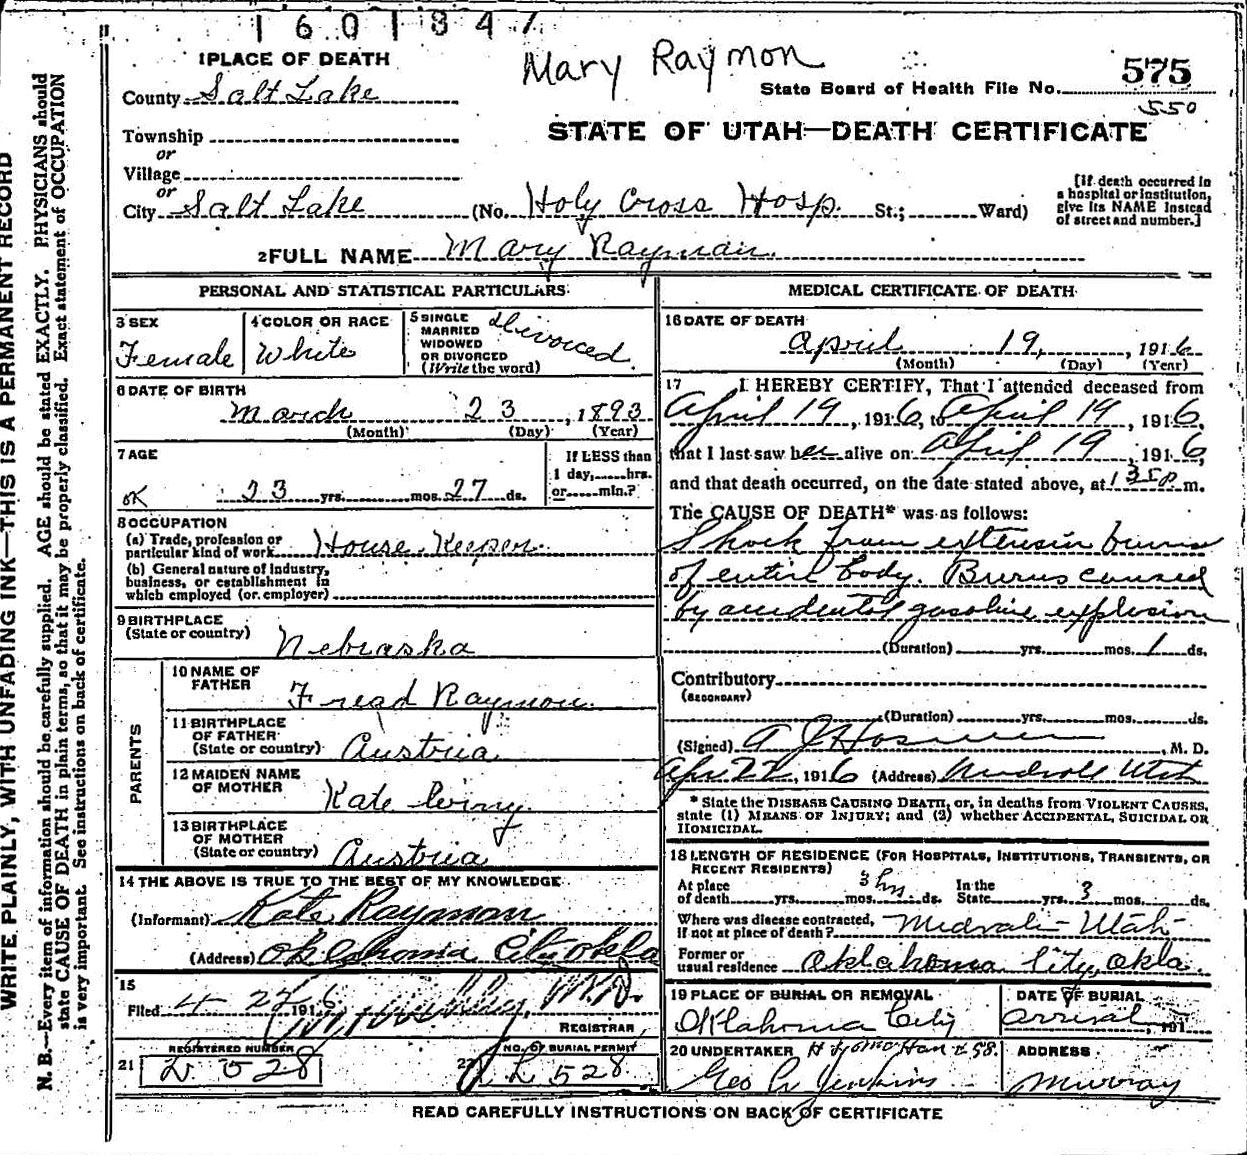 1601847
Mary Raymon
1 PLACE OF DEATH
575
State Board of Health File No.
550
County Salt Lake
STATE OF UTAH—DEATH CERTIFICATE
Township
or
Village
or
City Salt Lake (No. Holy Cross Hosp. St.; Ward)
[If death occurred in
a hospital or institution,
give its NAME instead
of street and number.]
2 FULL NAME Mary Rayman.
PERSONAL AND STATISTICAL PARTICULARS
3 SEX
Female
4 COLOR OR RACE
White
5 SINGLE
MARRIED
WIDOWED
OR DIVORCED
(Write the word)
Divorced
6 DATE OF BIRTH
March 23, 1893
(Month) (Day) (Year)
7 AGE
OK 23 yrs. mos. 27 ds.
If LESS than
1 day, hrs.
or min.?
8 OCCUPATION
(a) Trade, profession or
particular kind of work House Keeper.
(b) General nature of industry,
business, or establishment in
which employed (or employer)
9 BIRTHPLACE
(State or country) Nebraska
PARENTS
10 NAME OF
FATHER Fread Raymon.
11 BIRTHPLACE
OF FATHER
(State or country) Austria
12 MAIDEN NAME
OF MOTHER Kate
13 BIRTHPLACE
OF MOTHER
(State or country) Austria
14 THE ABOVE IS TRUE TO THE BEST OF MY KNOWLEDGE
(Informant) Kate Raymon
(Address) Oklahoma City Okla
15
Filed 4 27 1916 M.D.
REGISTRAR
REGISTERED NUMBER
21 528
NO. OF BURIAL PERMIT
22 L 528
MEDICAL CERTIFICATE OF DEATH
16 DATE OF DEATH
April 19, 1916
(Month) (Day) (Year)
17 I HEREBY CERTIFY, That I attended deceased from
April 19, 1916, to April 19, 1916,
that I last saw her alive on April 19, 1916,
and that death occurred, on the date stated above, at 1 35 p m.
The CAUSE OF DEATH* was as follows:
Shock from extensiv burns
of entire body. Burns caused
by accidental gasoline explosion
(Duration) yrs. mos. 1 ds.
Contributory
(SECONDARY)
(Duration) yrs. mos. ds.
(Signed) A J Hosmer, M. D.
Apr. 22, 1916 (Address) Midvale Utah
* State the DISEASE CAUSING DEATH, or, in deaths from VIOLENT CAUSES,
state (1) MEANS OF INJURY; and (2) whether ACCIDENTAL, SUICIDAL OR
HOMICIDAL.
18 LENGTH OF RESIDENCE (FOR HOSPITALS, INSTITUTIONS, TRANSIENTS, OR
RECENT RESIDENTS)
At place
of death yrs. mos. 3 hrs ds.
In the
State yrs. 3 mos. ds.
Where was disease contracted,
if not at place of death? Midvale Utah
Former or
usual residence Oklahoma City, Okla.
19 PLACE OF BURIAL OR REMOVAL
Oklahoma City
DATE OF BURIAL
arrival 191
20 UNDERTAKER
Geo Jenkins
ADDRESS
Murray
READ CAREFULLY INSTRUCTIONS ON BACK OF CERTIFICATE
WRITE PLAINLY, WITH UNFADING INK—THIS IS A PERMANENT RECORD
N. B.—Every item of information should be carefully supplied. AGE should be stated EXACTLY. PHYSICIANS should
state CAUSE OF DEATH in plain terms, so that it may be properly classified. Exact statement of OCCUPATION
is very important. See instructions on back of certificate.